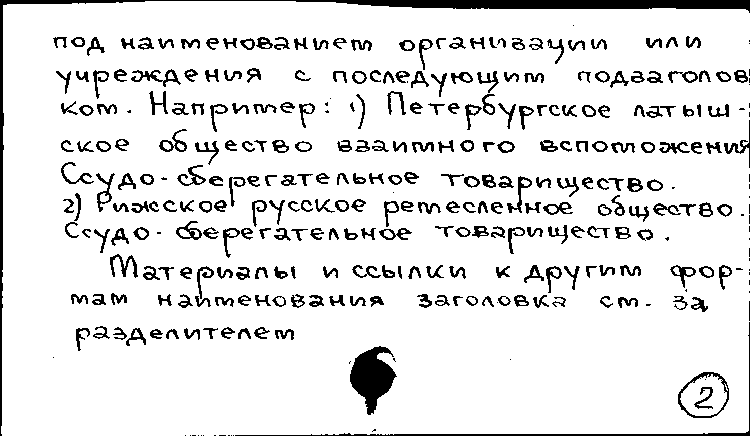 под наименованием организации или
учреждения с последующим подзаголов
ком. Например: 1) Петербургское латыш-
ское общество взаимного вспоможения
Ссудо-сберегательное товарищество.
2) Рижское русское ремесленное общество.
Ссудо-сберегательное товарищество.
Материалы и ссылки к другим фор-
мам наименования заголовка см. за
разделителем
2